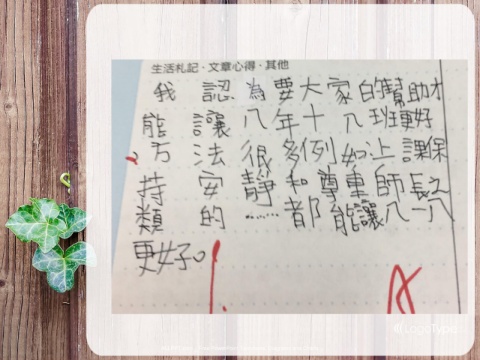 生活札記·文章心得·其他
我認為要大家的幫助才
能讓八年十八班更好
方法很多例如上課保
持安靜和尊重師長之
類的……都能讓八一八
更好。
LogoType